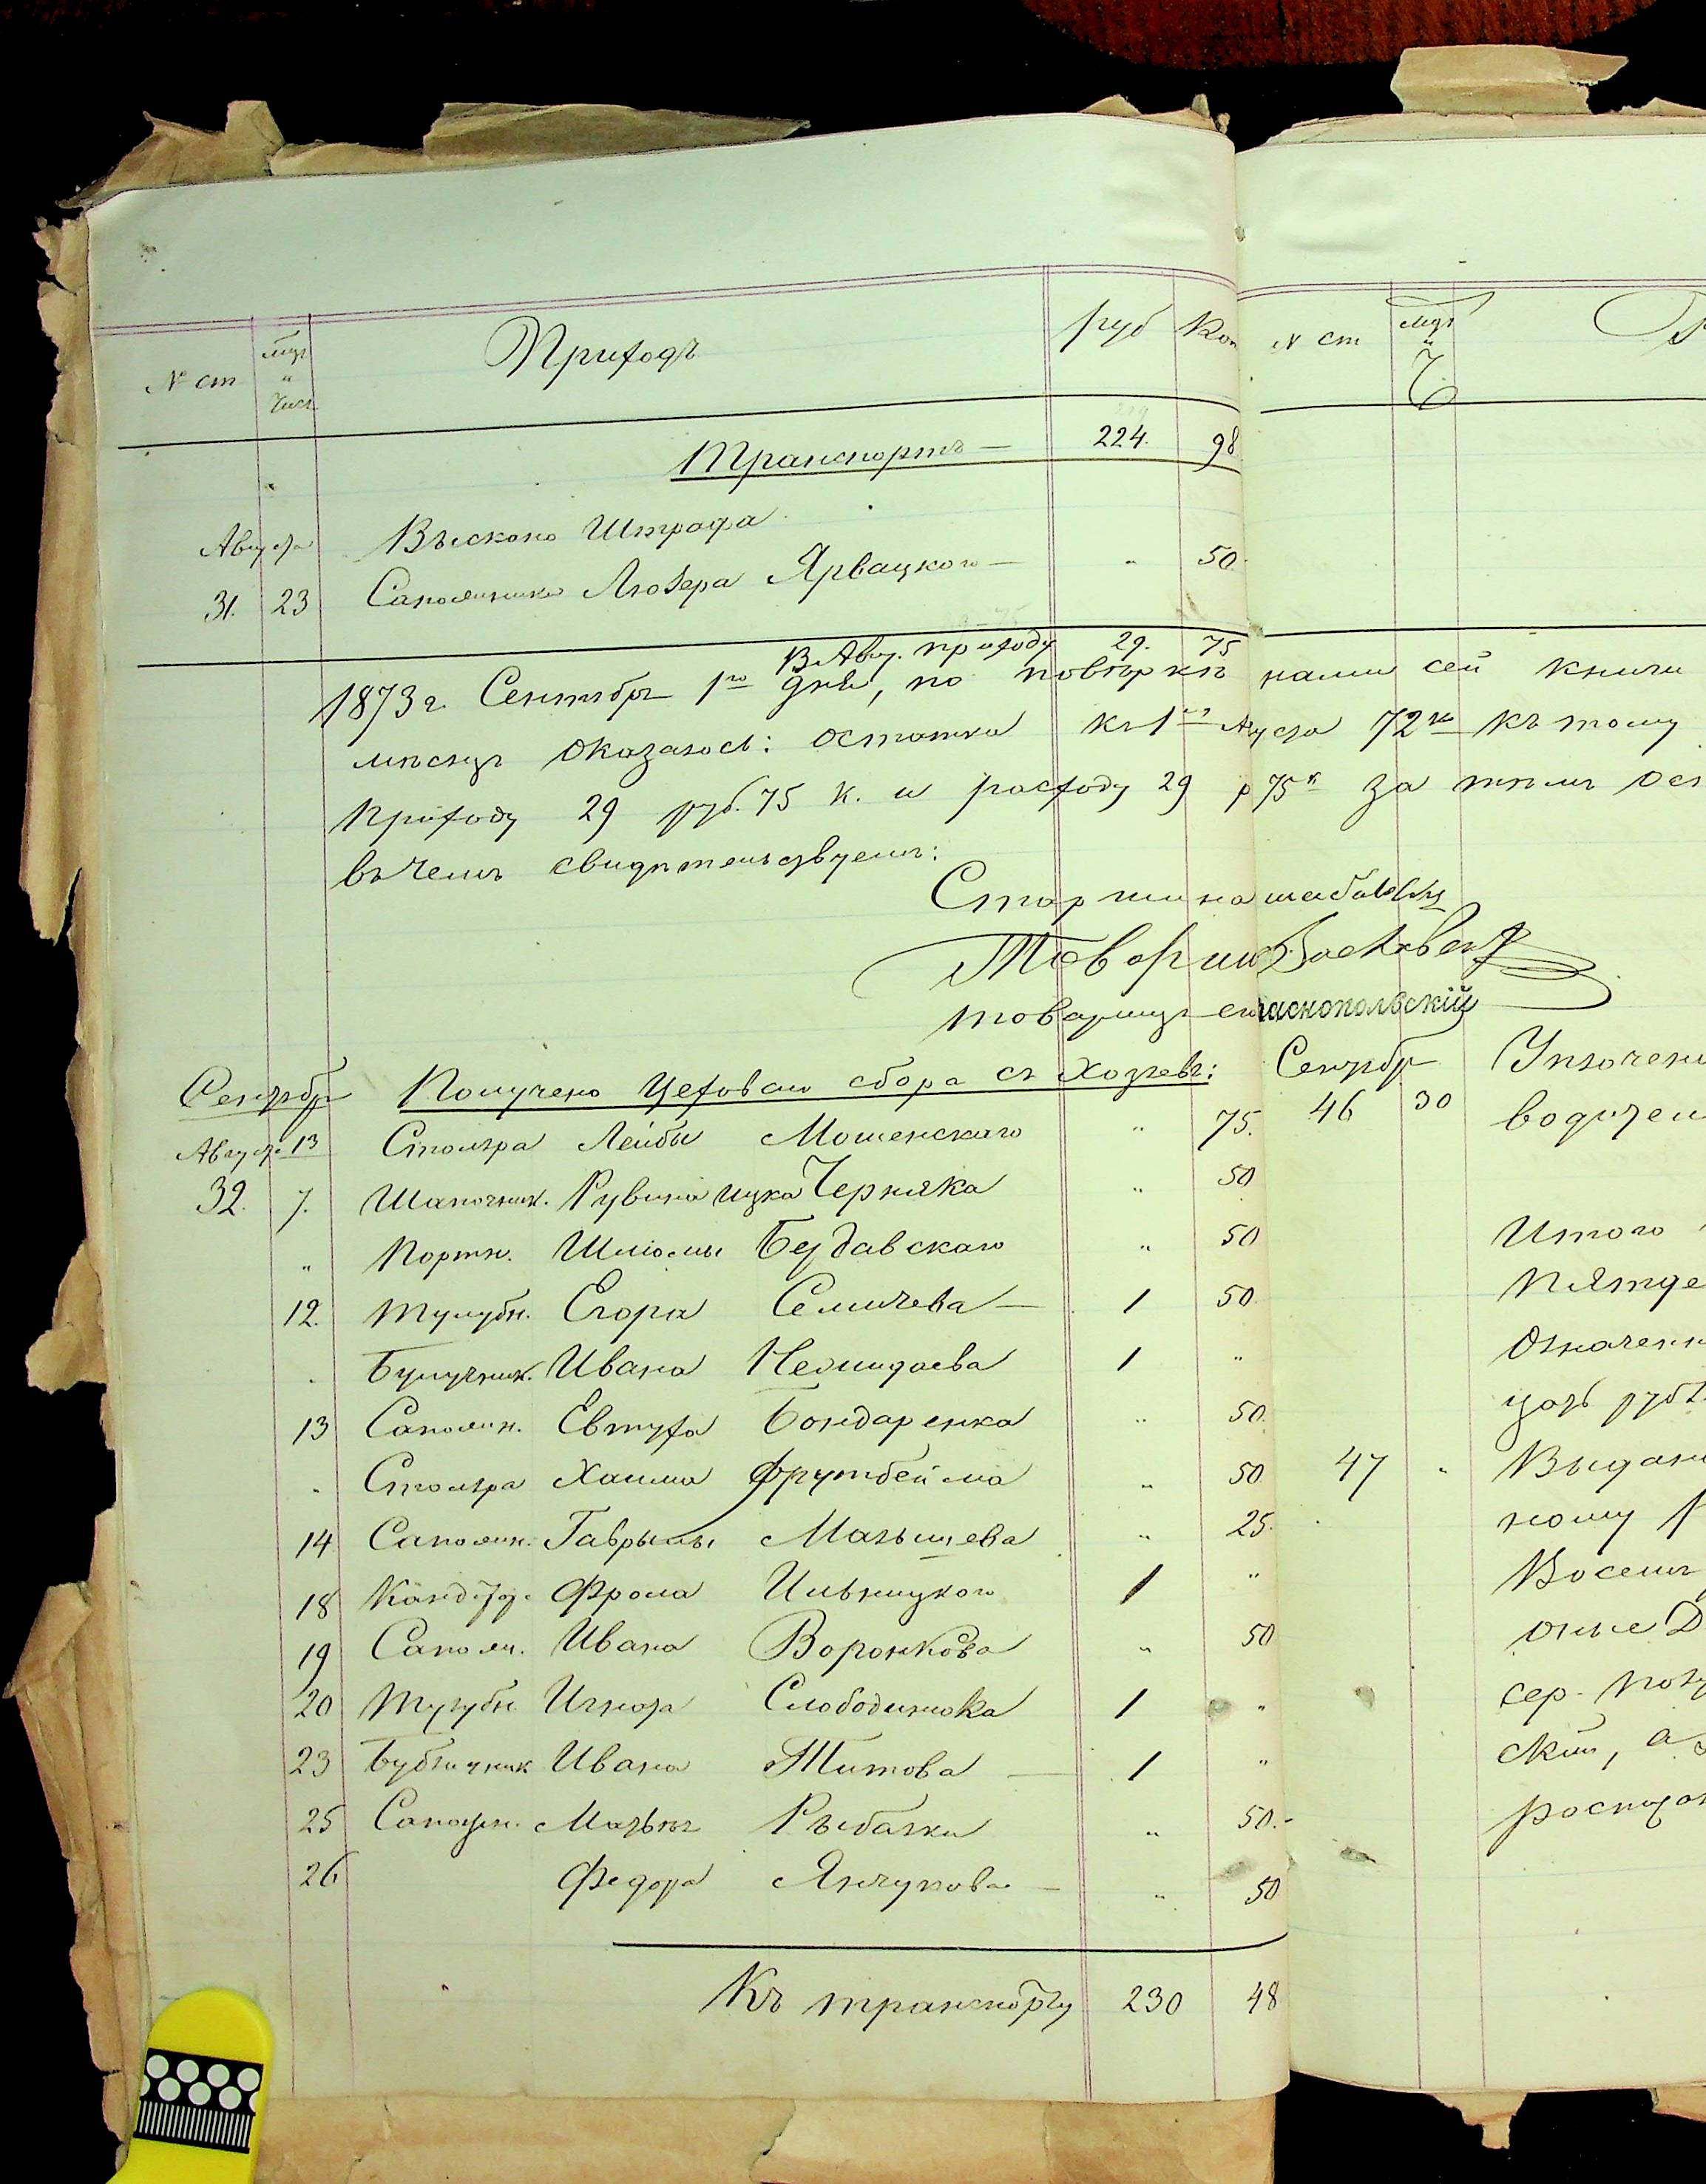 № ст мцъ и Числ Приходъ руб Коп
Транспортъ — 224. 98
Августа Взыскано Штрафа
31. 23 Сапожника Лювера Ярвацкого — " 50.
В Авг. приходу 29. 75
1873 г. Сентября 1го дня, по повѣркѣ нами сей книги
мѣсяцъ оказалось: остатка къ 1му Августа 72 к къ тому
приходу 29 руб. 75 к. и расходу 29 р 75 к за тѣмъ ос
въ чемъ свидѣтельствуемъ:
Старшина
товарищъ
Сентябр Получено Цеховаго сбора съ Хозяевъ:
Августа 13 Столяра Лейбы Мошенскаго " 75.
32. 7. Шапочник. Рувина Ицка Черняка " 50
" Портн. Шліомы Бердавскаго " 50
12. Тулубн. Егора Селичева — 1 50
Булучник. Ивана Немидаева 1 "
13 Сапожн. Евтуха Бондаренка " 50.
Столяра Хаима Фрухтбейма " 50
14 Сапожн. Гаврылы Малышева " 25.
18 Кандитр. Фрома Ильницкого 1 "
19 Сапожн. Ивана Воронкова " 50
20 Тулубн. Игната Слободинюка 1 "
23 Бубличник Ивана Титова — 1 "
25 Сапожн. Матвѣя Рыбалки " 50.-
26 Федора Янчукова — " 50
Къ транспорту 230 48
№ ст мцъ и Ч
Сентябр Уплочен
46 30
Итого
Пятде
Означенн
47 " Выдан
ному
Восемь
сер. полу
ский, а